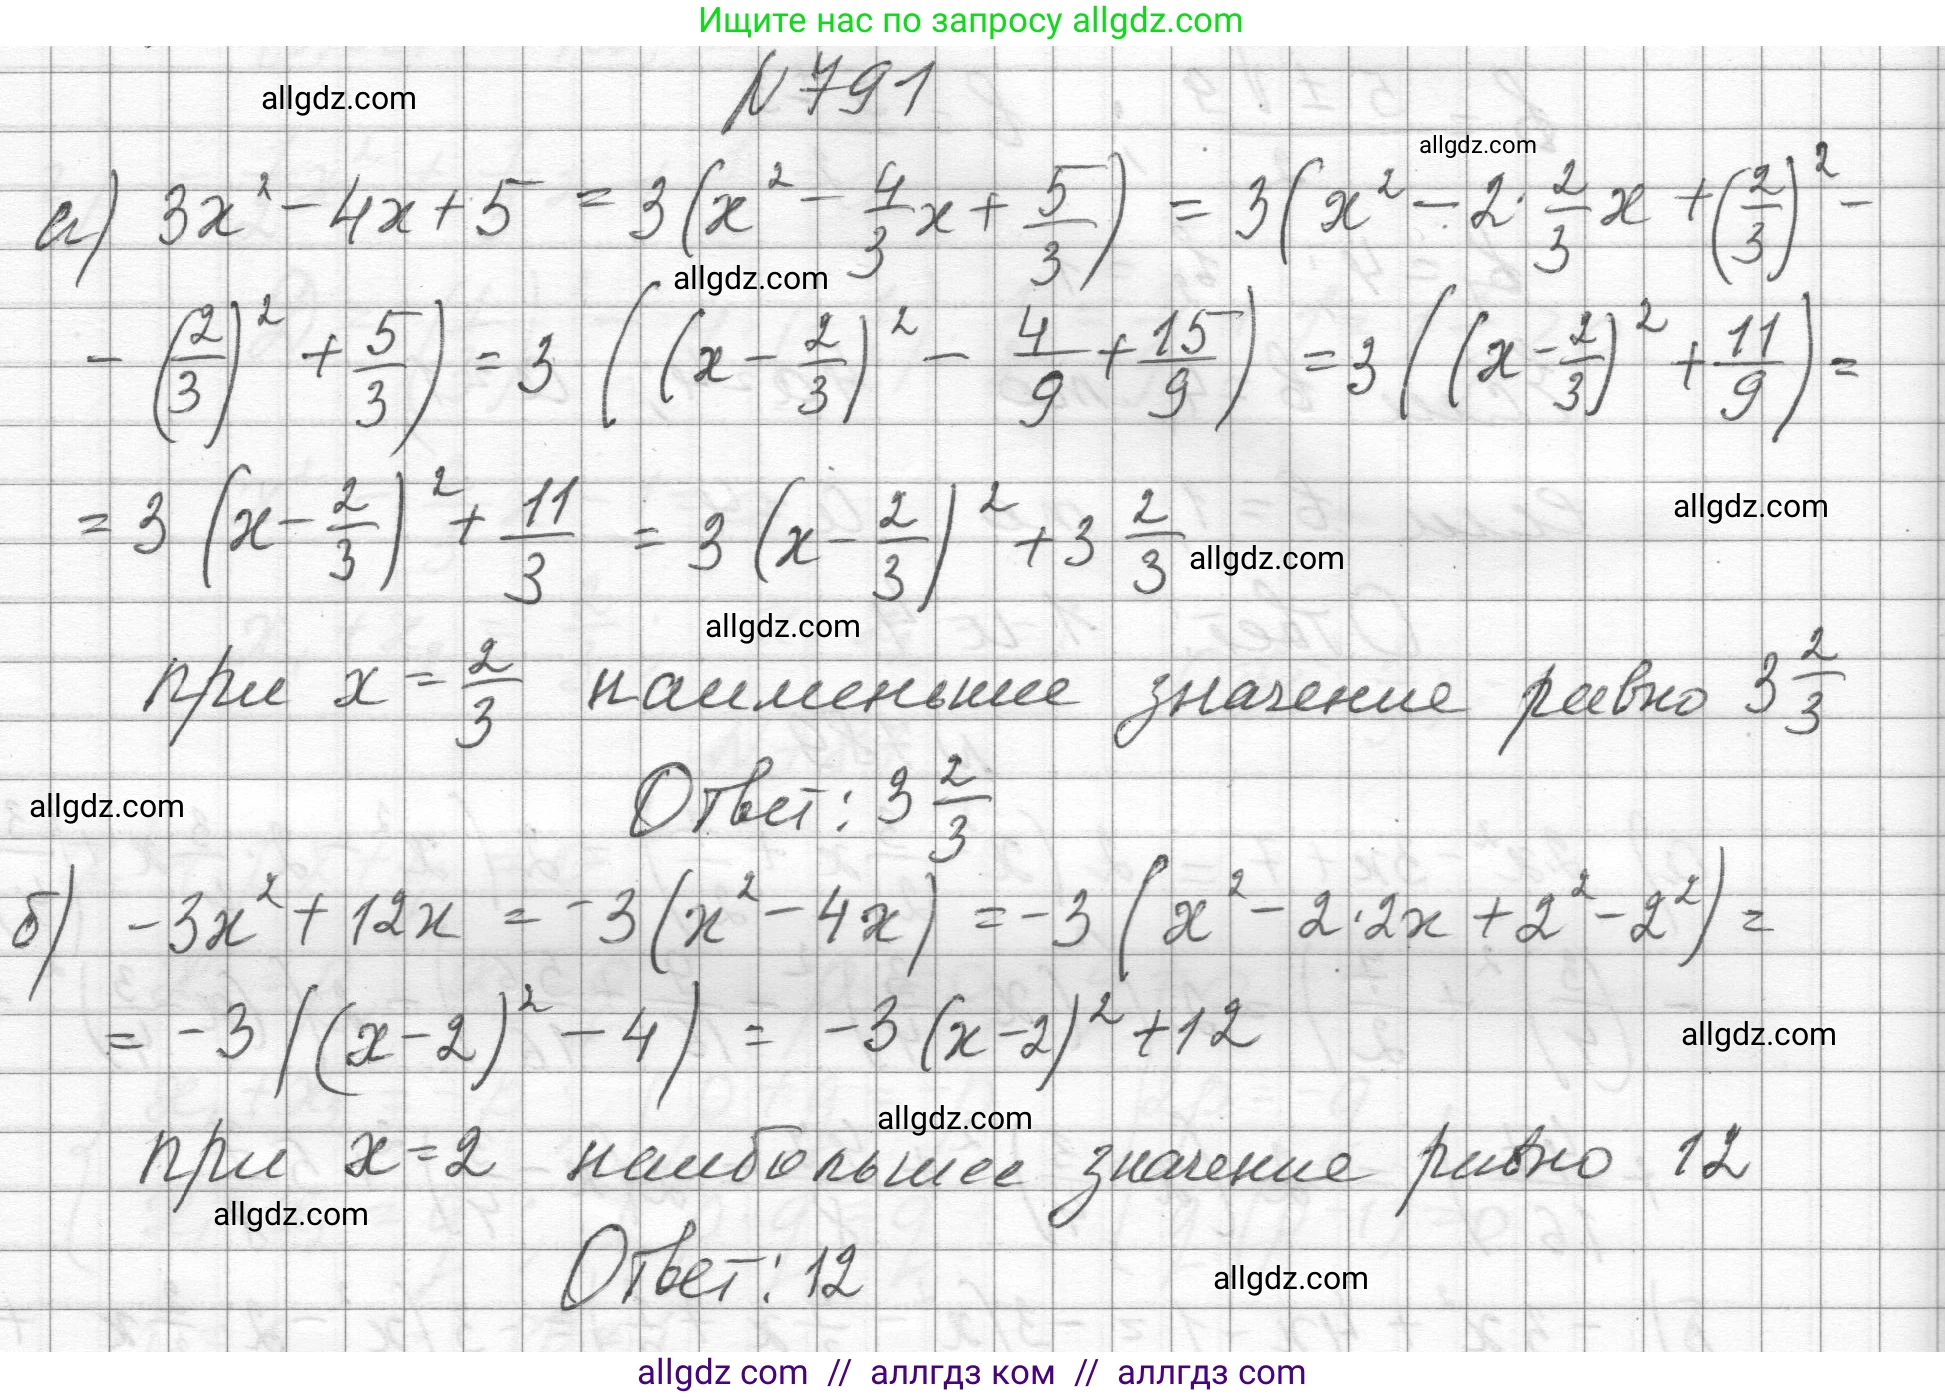 Ищите нас по запросу allgdz.com
№791
allgdz.com
allgdz.com
а) 3x² - 4x + 5 = 3(x² - 4/3 x + 5/3) = 3(x² - 2·2/3 x + (2/3)² -
allgdz.com
- (2/3)² + 5/3) = 3((x - 2/3)² - 4/9 + 15/9) = 3((x - 2/3)² + 11/9) =
= 3(x - 2/3)² + 11/3 = 3(x - 2/3)² + 3 2/3
allgdz.com
allgdz.com
allgdz.com
при x = 2/3 наименьшее значение равно 3 2/3
allgdz.com
Ответ: 3 2/3
б) -3x² + 12x = -3(x² - 4x) = -3(x² - 2·2x + 2² - 2²) =
= -3((x - 2)² - 4) = -3(x - 2)² + 12
allgdz.com
allgdz.com
при x = 2 наибольшее значение равно 12
allgdz.com
Ответ: 12
allgdz.com
allgdz com // аллгдз ком // аллгдз com